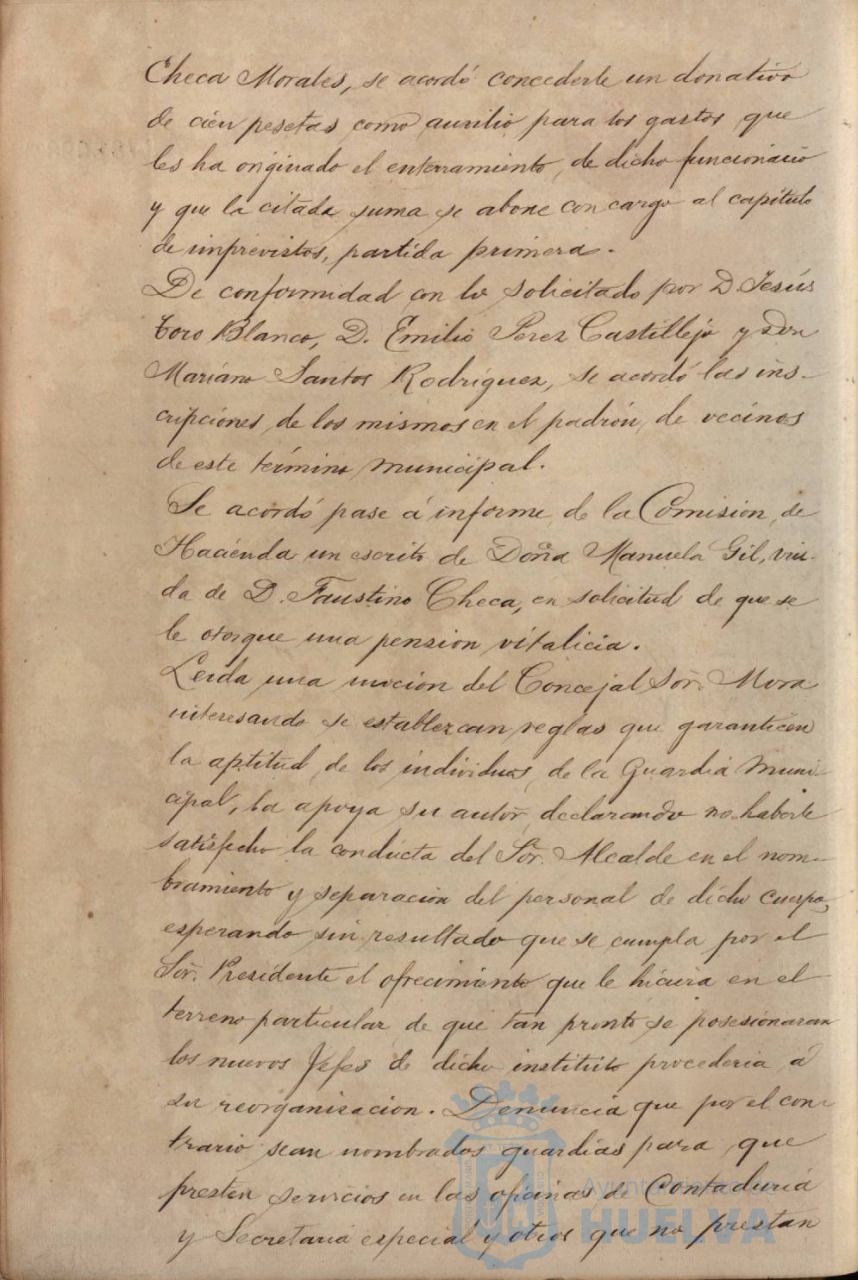 Checa Morales, se acordó concederle un donativo
de cien pesetas como auxilio para los gastos que
les ha originado el enterramiento, de dicho funcionario
y que la citada suma se abone con cargo al capítulo
de imprevistos, partida primera.
De conformidad con lo solicitado por D. Jesús
Toro Blanco, D. Emilio Perez Castillejo y don
Mariano Santos Rodríguez, se acordó las ins-
cripciones, de los mismos en el padrón, de vecinos
de este término municipal.
Se acordó pase á informe de la Comision, de
Hacienda un escrito de Doña Manuela Gil, viu-
da de D. Faustino Checa, en solicitud de que se
le otorgue una pension vitalicia.
Leida una mocion del Concejal Sor. Mora
interesando se establezcan reglas que garanticen
la aptitud, de los individuos, de la Guardia Muni-
cipal, la apoya su autor, declarando no haberle
satisfecho la conducta del Sor. Alcalde en el nom-
bramiento y separacion del personal de dicho cuerpo,
esperando sin resultado que se cumpla por el
Sor. Presidente el ofrecimiento que le hiciera en el
terreno particular de que tan pronto se posesionaran
los nuevos Jefes de dicho instituto procederia á
su reorganizacion. Denuncia que por el con-
trario sean nombrados guardias para que
presten servicios en las oficinas de Contaduria
y Secretaria especial y otros que no prestan
Ayuntamiento de
HUELVA